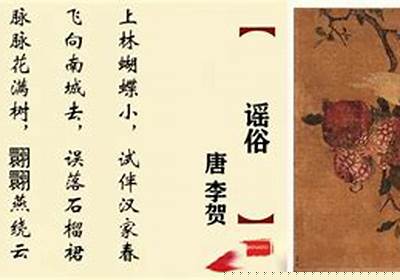 【谣俗】
唐 李贺
上林蝴蝶小，试伴汉家春
飞向南城去，误落石榴裙
脉脉花满树，翾翾燕绕云